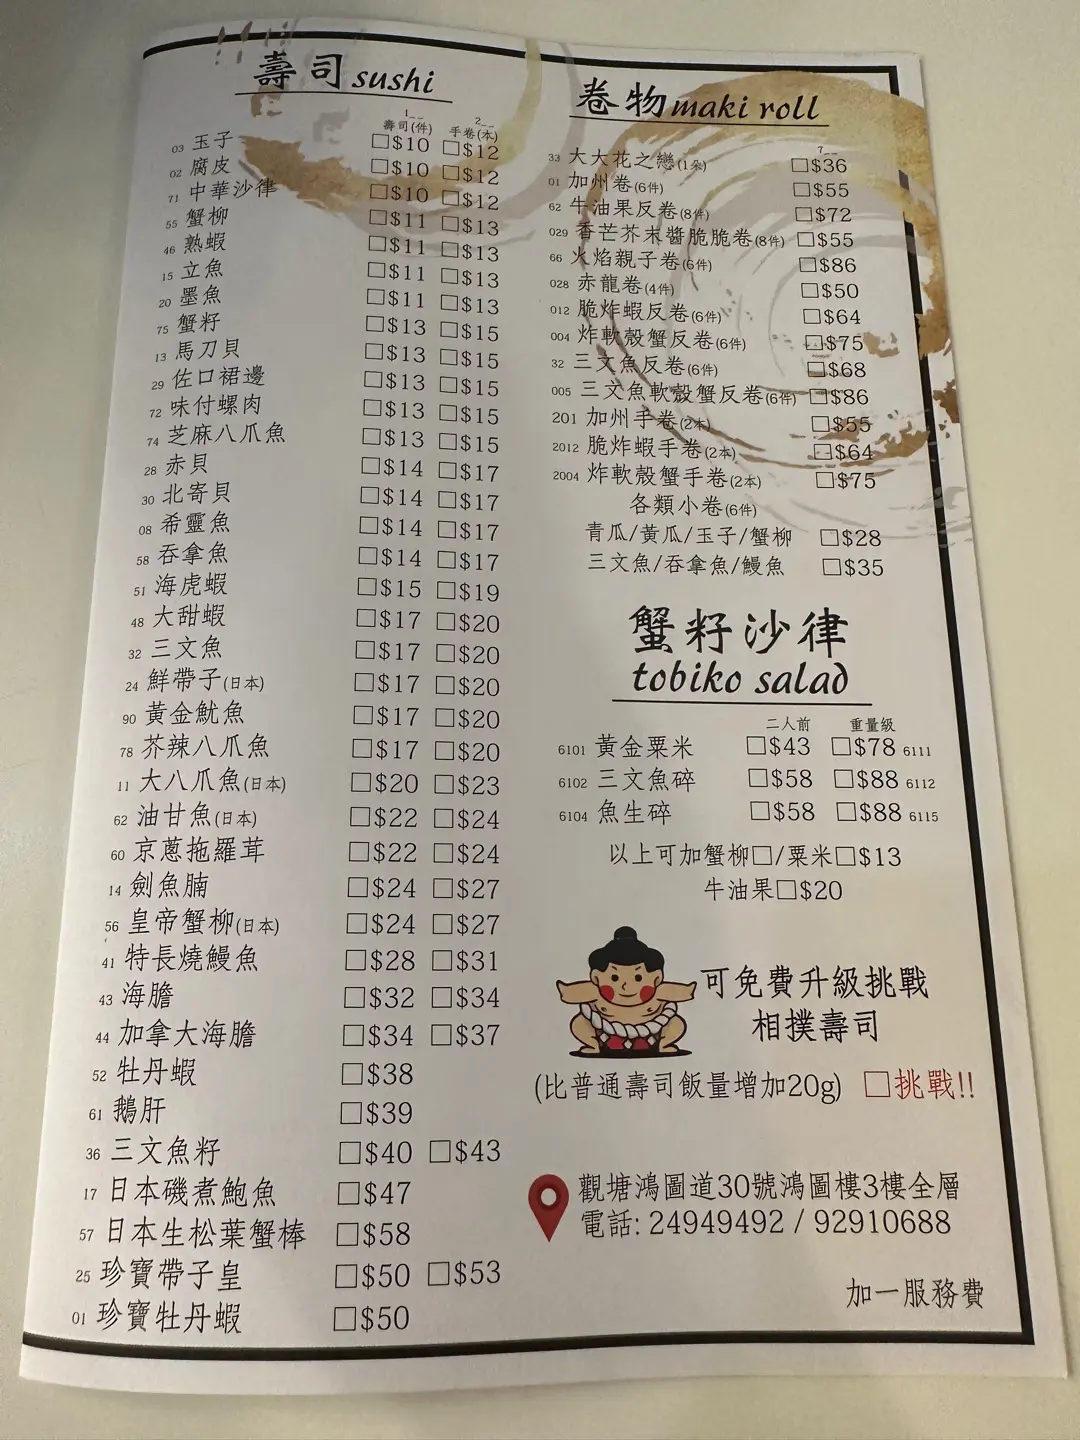 壽司 sushi
1__ 2__
壽司(件) 手卷(本)
03 玉子 □$10 □$12
02 腐皮 □$10 □$12
71 中華沙律 □$10 □$12
55 蟹柳 □$11 □$13
46 熟蝦 □$11 □$13
15 立魚 □$11 □$13
20 墨魚 □$11 □$13
75 蟹籽 □$13 □$15
13 馬刀貝 □$13 □$15
29 佐口裙邊 □$13 □$15
72 味付螺肉 □$13 □$15
74 芝麻八爪魚 □$13 □$15
28 赤貝 □$14 □$17
30 北寄貝 □$14 □$17
08 希靈魚 □$14 □$17
58 吞拿魚 □$14 □$17
51 海虎蝦 □$15 □$19
48 大甜蝦 □$17 □$20
32 三文魚 □$17 □$20
24 鮮帶子(日本) □$17 □$20
90 黃金魷魚 □$17 □$20
78 芥辣八爪魚 □$17 □$20
11 大八爪魚(日本) □$20 □$23
62 油甘魚(日本) □$22 □$24
60 京蔥拖羅茸 □$22 □$24
14 劍魚腩 □$24 □$27
56 皇帝蟹柳(日本) □$24 □$27
41 特長燒鰻魚 □$28 □$31
43 海膽 □$32 □$34
44 加拿大海膽 □$34 □$37
52 牡丹蝦 □$38
61 鵝肝 □$39
36 三文魚籽 □$40 □$43
17 日本磯煮鮑魚 □$47
57 日本生松葉蟹棒 □$58
25 珍寶帶子皇 □$50 □$53
01 珍寶牡丹蝦 □$50
卷物 maki roll
7__
33 大大花之戀(1朵) □$36
01 加州卷(6件) □$55
62 牛油果反卷(8件) □$72
029 香芒芥末醬脆脆卷(8件) □$55
66 火焰親子卷(6件) □$86
028 赤龍卷(4件) □$50
012 脆炸蝦反卷(6件) □$64
004 炸軟殼蟹反卷(6件) □$75
32 三文魚反卷(6件) □$68
005 三文魚軟殼蟹反卷(6件) □$86
201 加州手卷(2本) □$55
2012 脆炸蝦手卷(2本) □$64
2004 炸軟殼蟹手卷(2本) □$75
各類小卷(6件)
青瓜/黃瓜/玉子/蟹柳 □$28
三文魚/吞拿魚/鰻魚 □$35
蟹籽沙律
tobiko salad
二人前 重量級
6101 黃金粟米 □$43 □$78 6111
6102 三文魚碎 □$58 □$88 6112
6104 魚生碎 □$58 □$88 6115
以上可加蟹柳□/粟米□$13
牛油果□$20
可免費升級挑戰
相撲壽司
(比普通壽司飯量增加20g) □挑戰!!
觀塘鴻圖道30號鴻圖樓3樓全層
電話: 24949492 / 92910688
加一服務費